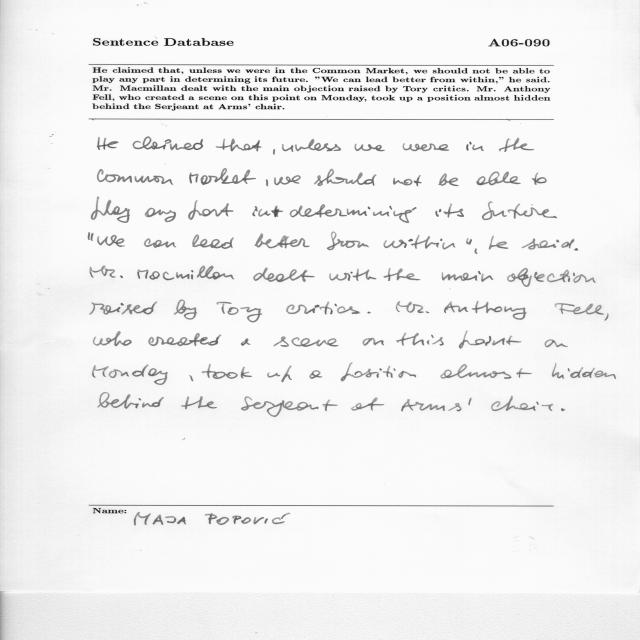 Sentence Database A06-090
He claimed that, unless we were in the Common Market, we should not be able to
play any part in determining its future. "We can lead better from within," he said.
Mr. Macmillan dealt with the main objection raised by Tory critics. Mr. Anthony
Fell, who created a scene on this point on Monday, took up a position almost hidden
behind the Serjeant at Arms' chair.
He claimed that, unless we were in the
Common Market, we should not be able to
play any part in determining its future
"We can lead better from within", he said.
Mr. Macmillan dealt with the main objection
raised by Tory critics. Mr. Anthony Fell,
who created a scene on this point on
Monday, took up a position almost hidden
behind the Serjeant at Arms' chair.
Name: MAJA POPOVIĆ